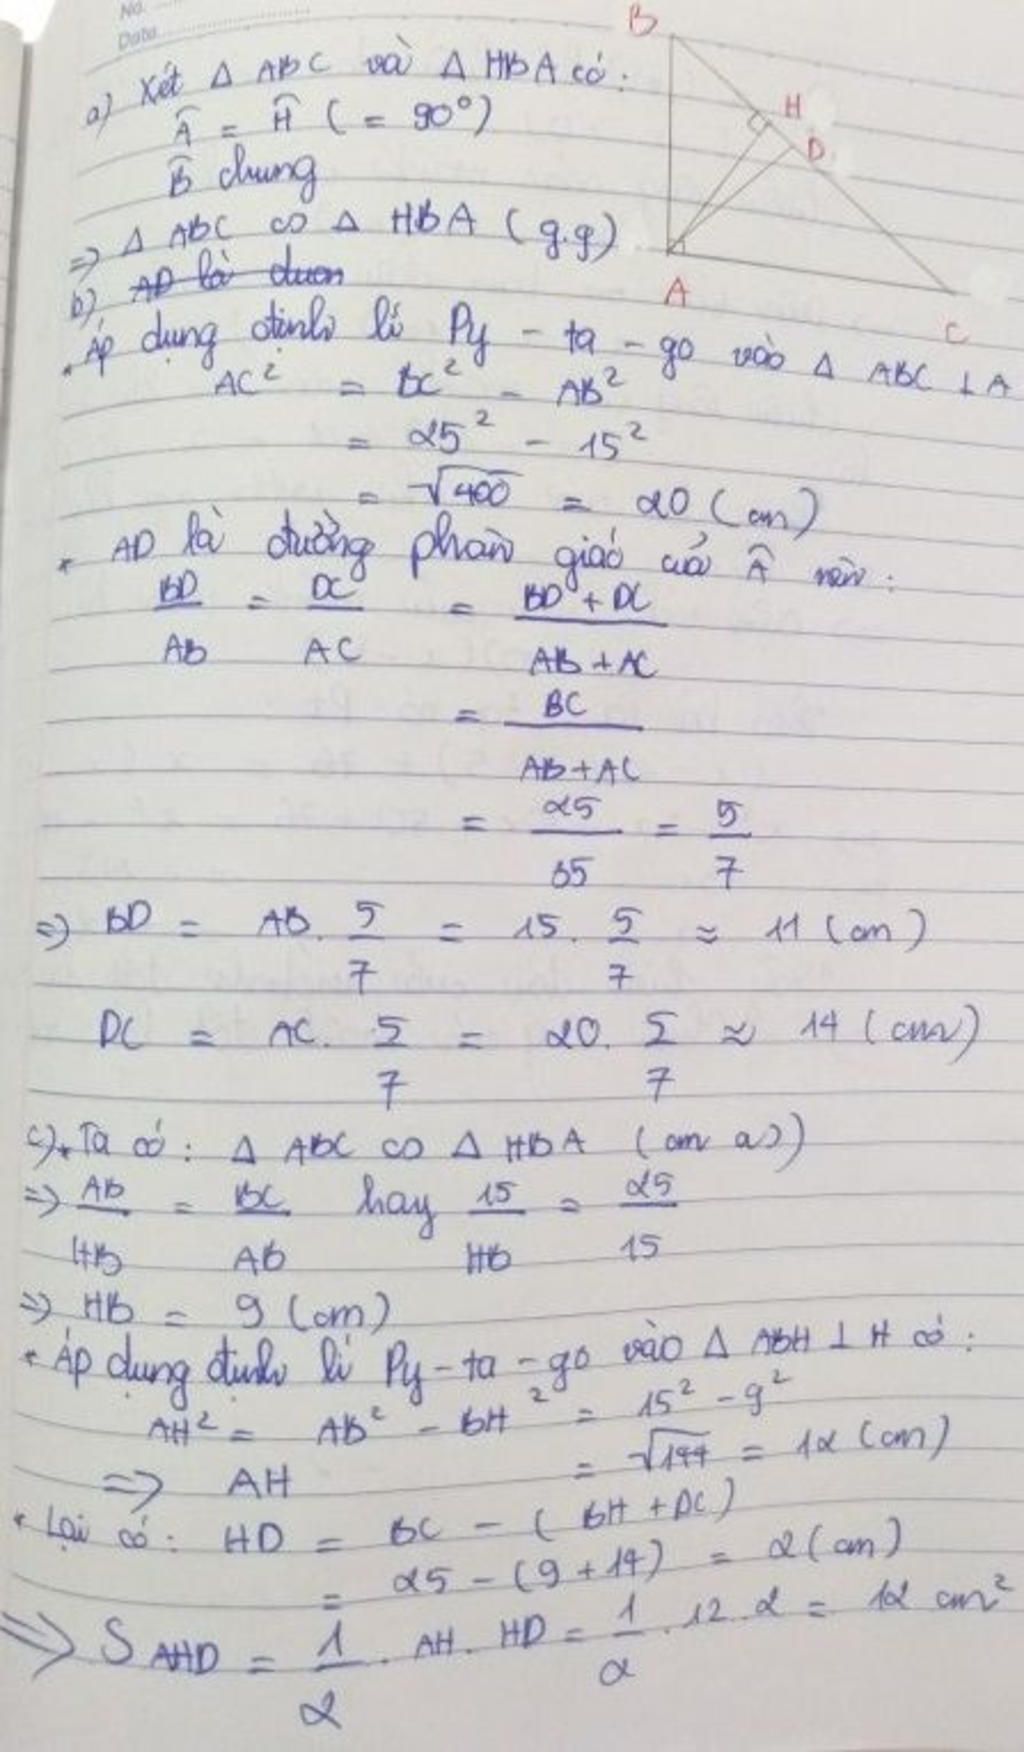 No.
Date
B
H
D
A
C
a) Xét Δ ABC và Δ HBA có :
Â = Ĥ ( = 90°)
B̂ chung
=> Δ ABC ∽ Δ HBA ( g.g)
b) AD là đuon
* Áp dụng định lí Py - ta - go vào Δ ABC ⊥ A
AC² = BC² - AB²
= 25² - 15²
= √400 = 20 (cm)
* AD là đường phân giác của Â nên :
BD/AB = DC/AC = BD + DC/AB + AC
= BC/AB + AC
= 25/35 = 5/7
=> BD = AB. 5/7 = 15. 5/7 ≈ 11 (cm)
DC = AC. 5/7 = 20. 5/7 ≈ 14 (cm)
c) * Ta có : Δ ABC ∽ Δ HBA (cm a))
=> AB/HB = BC/AB hay 15/HB = 25/15
=> HB = 9 (cm)
* Áp dụng định lí Py - ta - go vào Δ ABH ⊥ H có :
AH² = AB² - BH² = 15² - 9²
=> AH = √144 = 12 (cm)
* Lại có : HD = BC - ( BH + DC)
= 25 - (9 + 14) = 2 (cm)
=> S AHD = 1/2 . AH . HD = 1/2 . 12 . 2 = 12 cm²